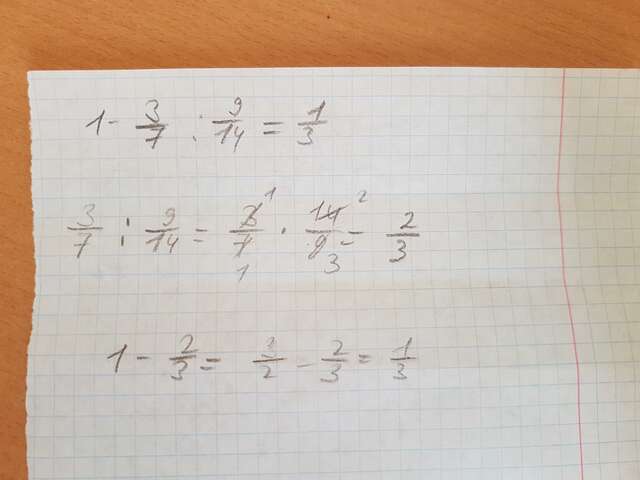 1 - 3/7 : 9/14 = 1/3
3/7 : 9/14 = 3/7 1 1 · 14/9 2 3 = 2/3
1 - 2/3 = 3/2 - 2/3 = 1/3